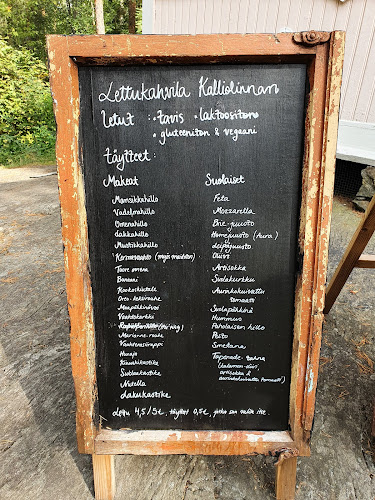 Lettukahvila Kalliolinnan
letut : • tavis • laktoositon
• gluteeniton & vegaani
täytteet :
Makeat
Mansikkahillo
Vadelmahillo
Omenahillo
Lakkahillo
Mustikkahillo
Kermavaahto (myös maidoton)
Tuore omena
Banaani
Kookoshiutale
Oreo-keksirouhe
Maapähkinävoi
Vaahtokarkki
Marianne-rouhe
Vaahterasiirappi
Hunaja
Kinuskikastike
Suklaakastike
Nutella
Lakukastike
Suolaiset
Feta
Mozzarella
Brie-juusto
Homejuusto (Aura)
Leipäjuusto
Oliivi
Artisokka
Suolakurkku
Aurinkokuivattu
tomaatti
Suolapähkinä
Hummus
Paholaisen hillo
Pesto
Smetana
Tapenade-tahna
(kalamon-oliivi,
artisokka &
aurinkokuivattu tomaatti)
Lettu 4,5/5€, täytteet 0,5€, jotka saa valita itse.